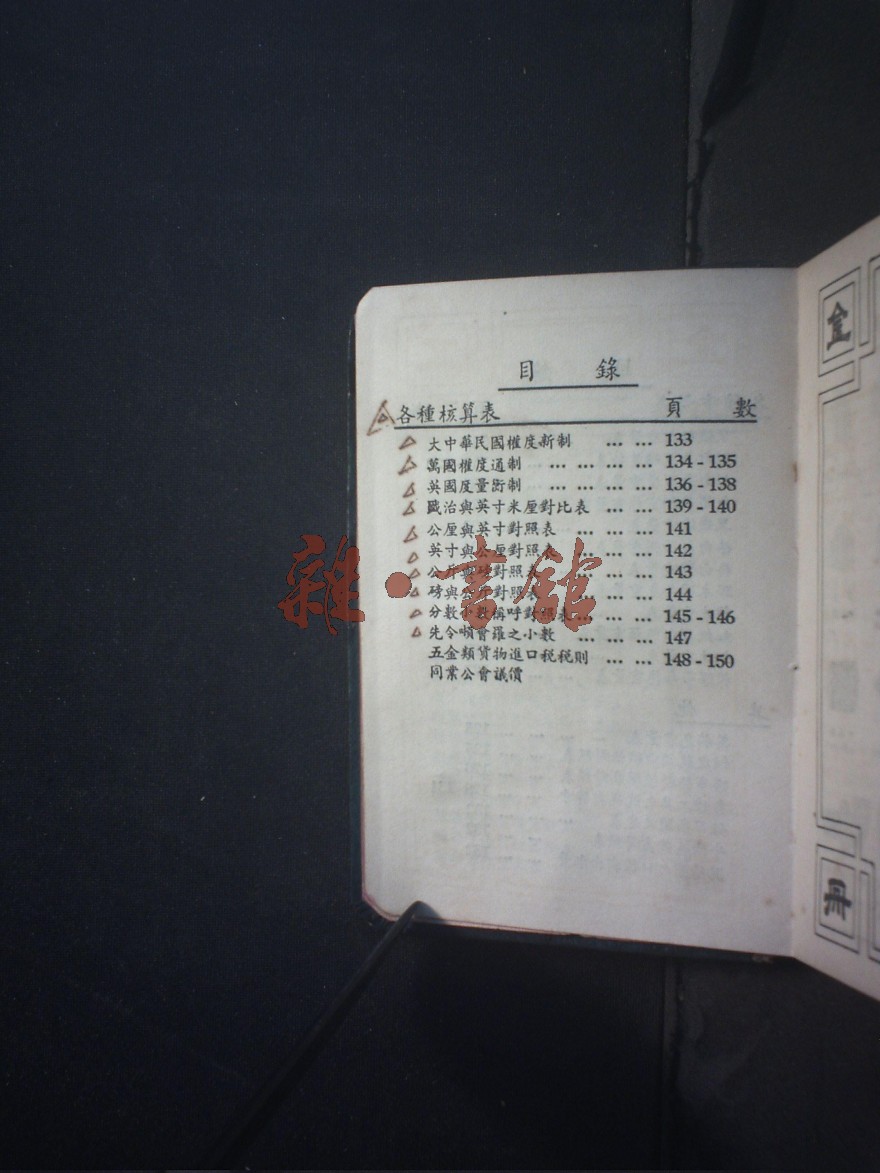 目 錄
各種核算表 頁 數
大中華民國權度新制 ... ... 133
萬國權度通制 ... ... ... ... 134 - 135
英國度量衡制 ... ... ... ... 136 - 138
與英寸米厘對比表 ... ... 139 - 140
公厘與英寸對照表 ... ... ... 141
英寸與公厘對照表 ... ... ... 142
公斤與磅對照表 ... ... 143
磅與公斤對照表 ... ... 144
分數小數稱呼對照表... ... ... 145 - 146
先令噸會羅之小數 ... ... ... 147
五金類貨物進口税税則 ... ... 148 - 150
同業公會議價
雜·書館
冊